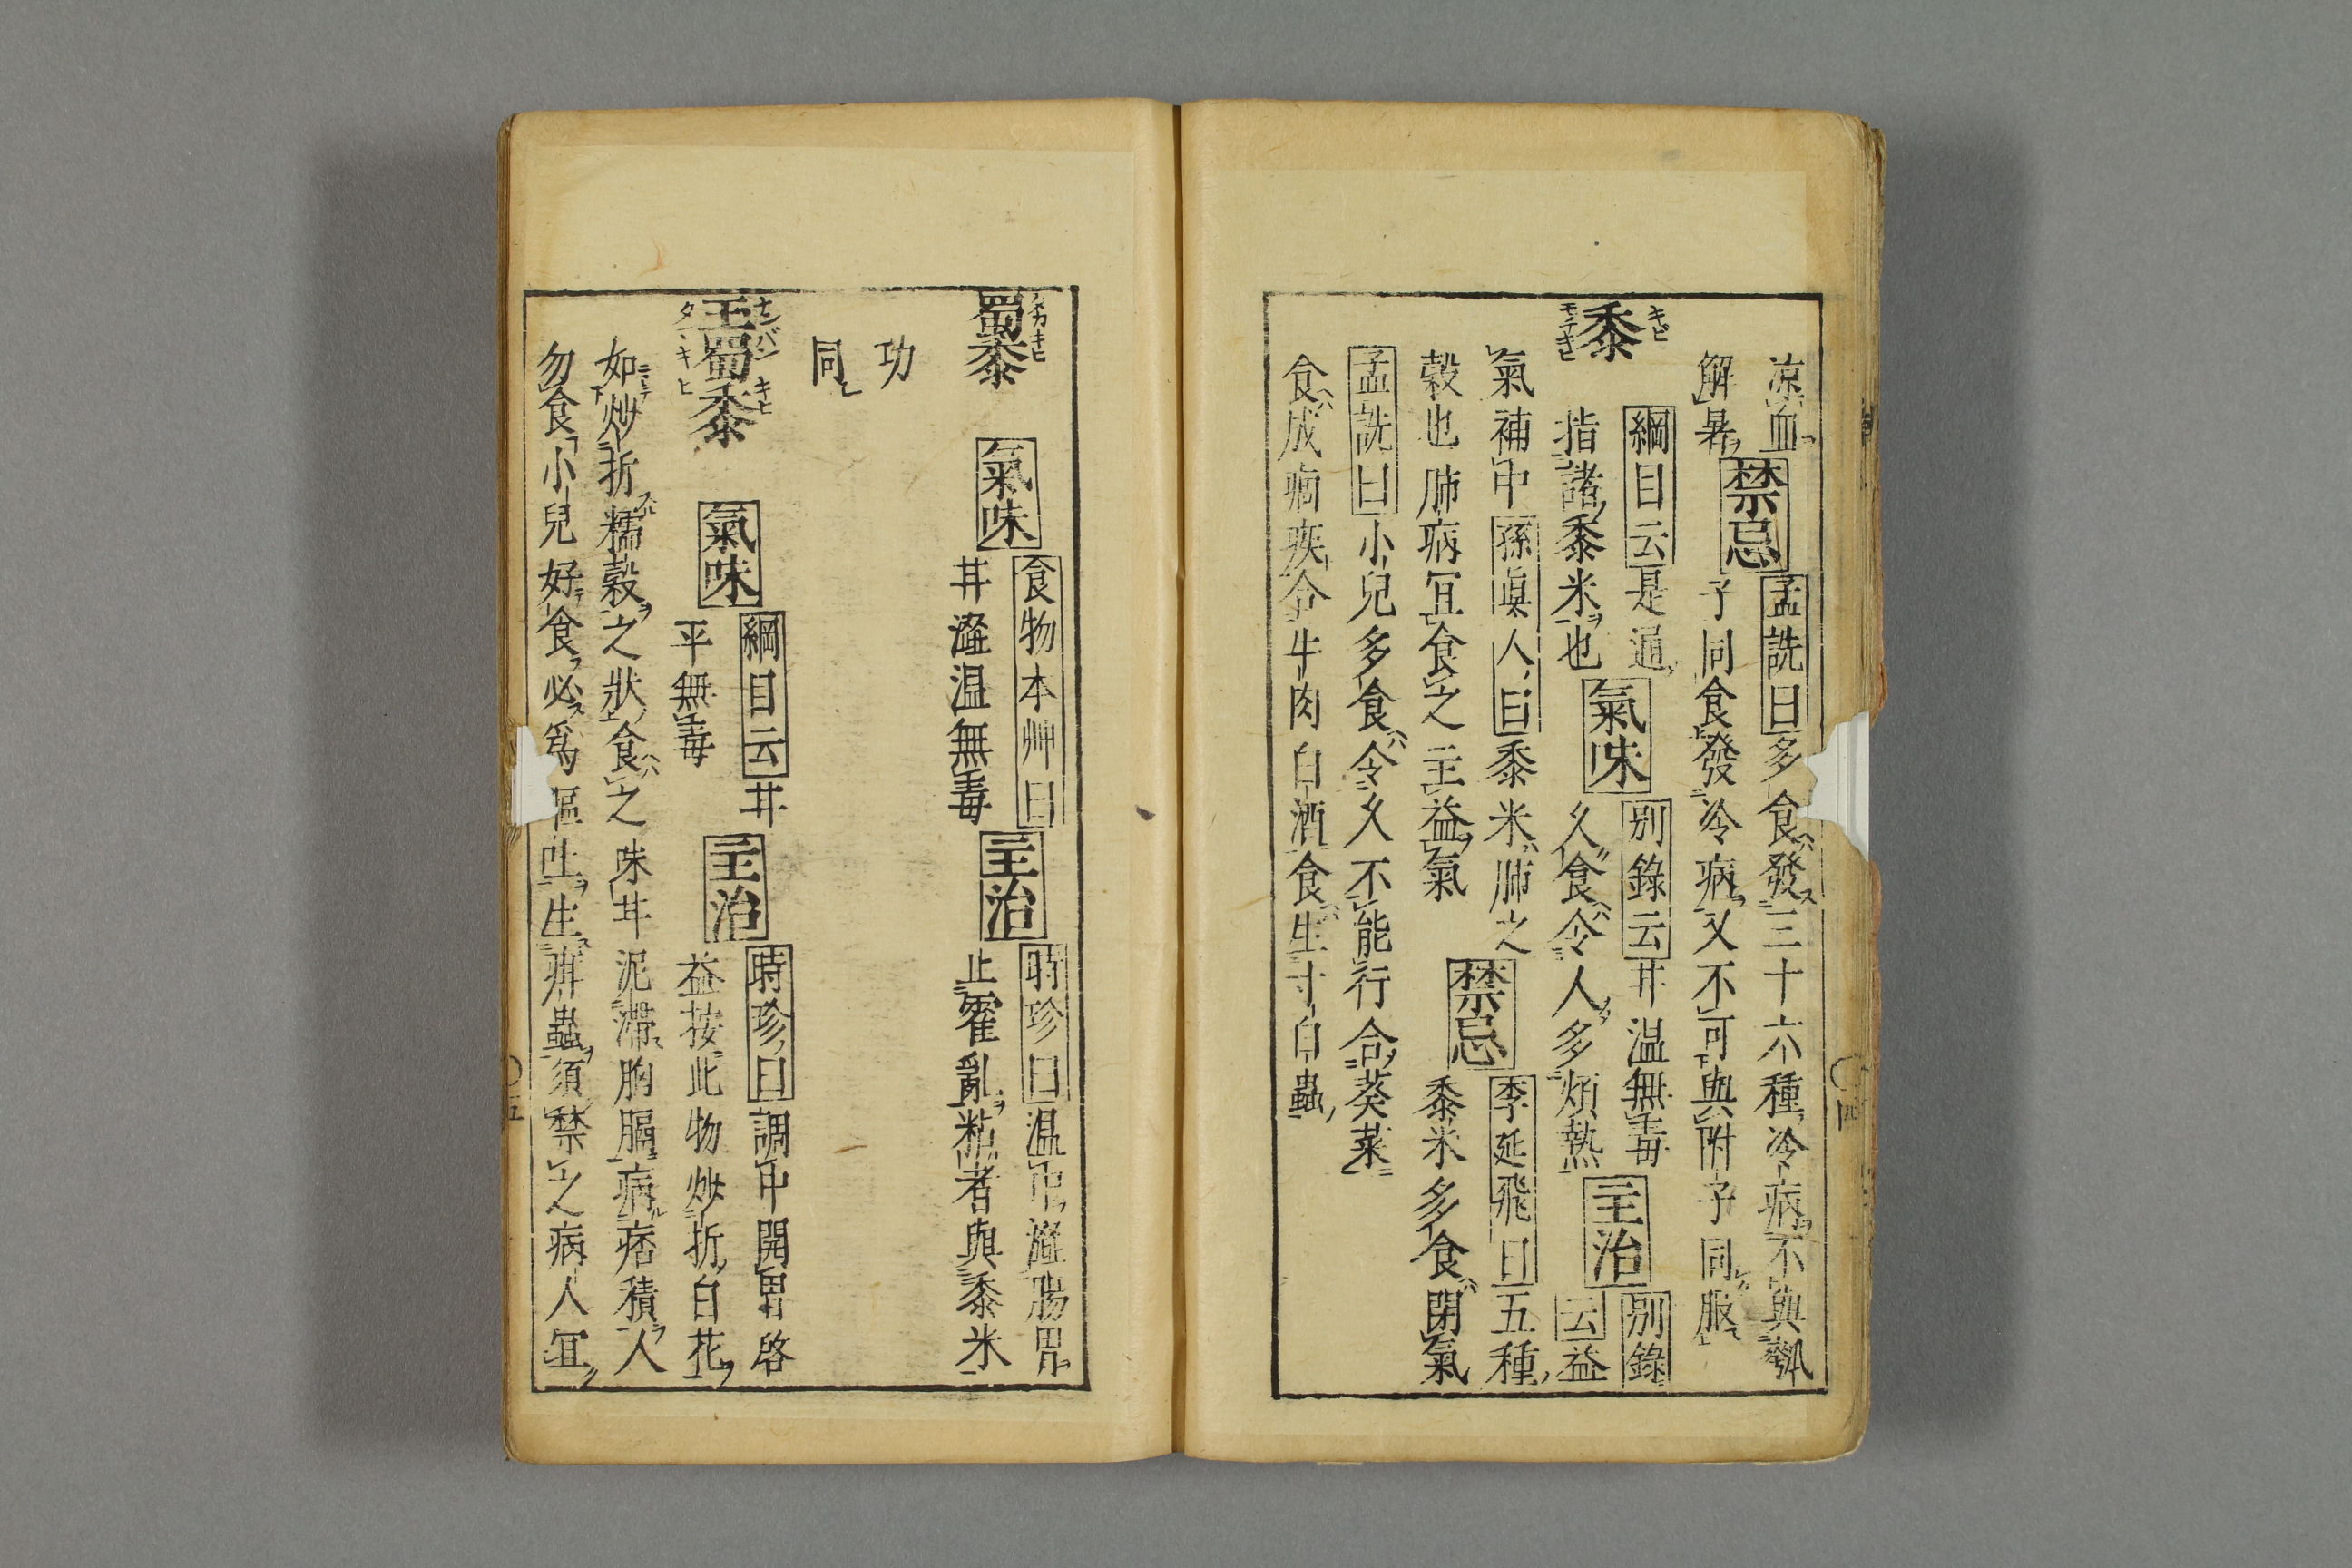 凉血
解暑
禁忌
孟詵曰多食發三十六種冷病不與瓠
子同食發冷病又不可與附子同服
黍
キビ
モチキビ
綱目云是通
指諸黍米也
氣味
別錄云甘温無毒
久食令人多煩熱
主治
別錄
云益
氣補中孫眞人曰黍米肺之
榖也肺病宜食之主益氣
禁忌
李延飛曰五種
黍米多食閉氣
孟詵曰小兒多食令久不能行合葵菜
食成痼疾合牛肉白酒食生寸白蟲
蜀黍
タカキヒ
氣味
食物本艸曰
甘濇温無毒
主治
時珍曰温中濇腸胃
止霍亂粘者與黍米
功
同
玉蜀黍
ナンバンキヒ
タマキヒ
氣味
綱目云甘
平無毒
主治
時珍曰調中開胃啓
益按此物炒折白花
如炒折糯榖之狀食之味甘泥滯胸膈病痞積人
勿食小兒好食必爲嘔吐生癖蟲須禁之病人宜
四
五